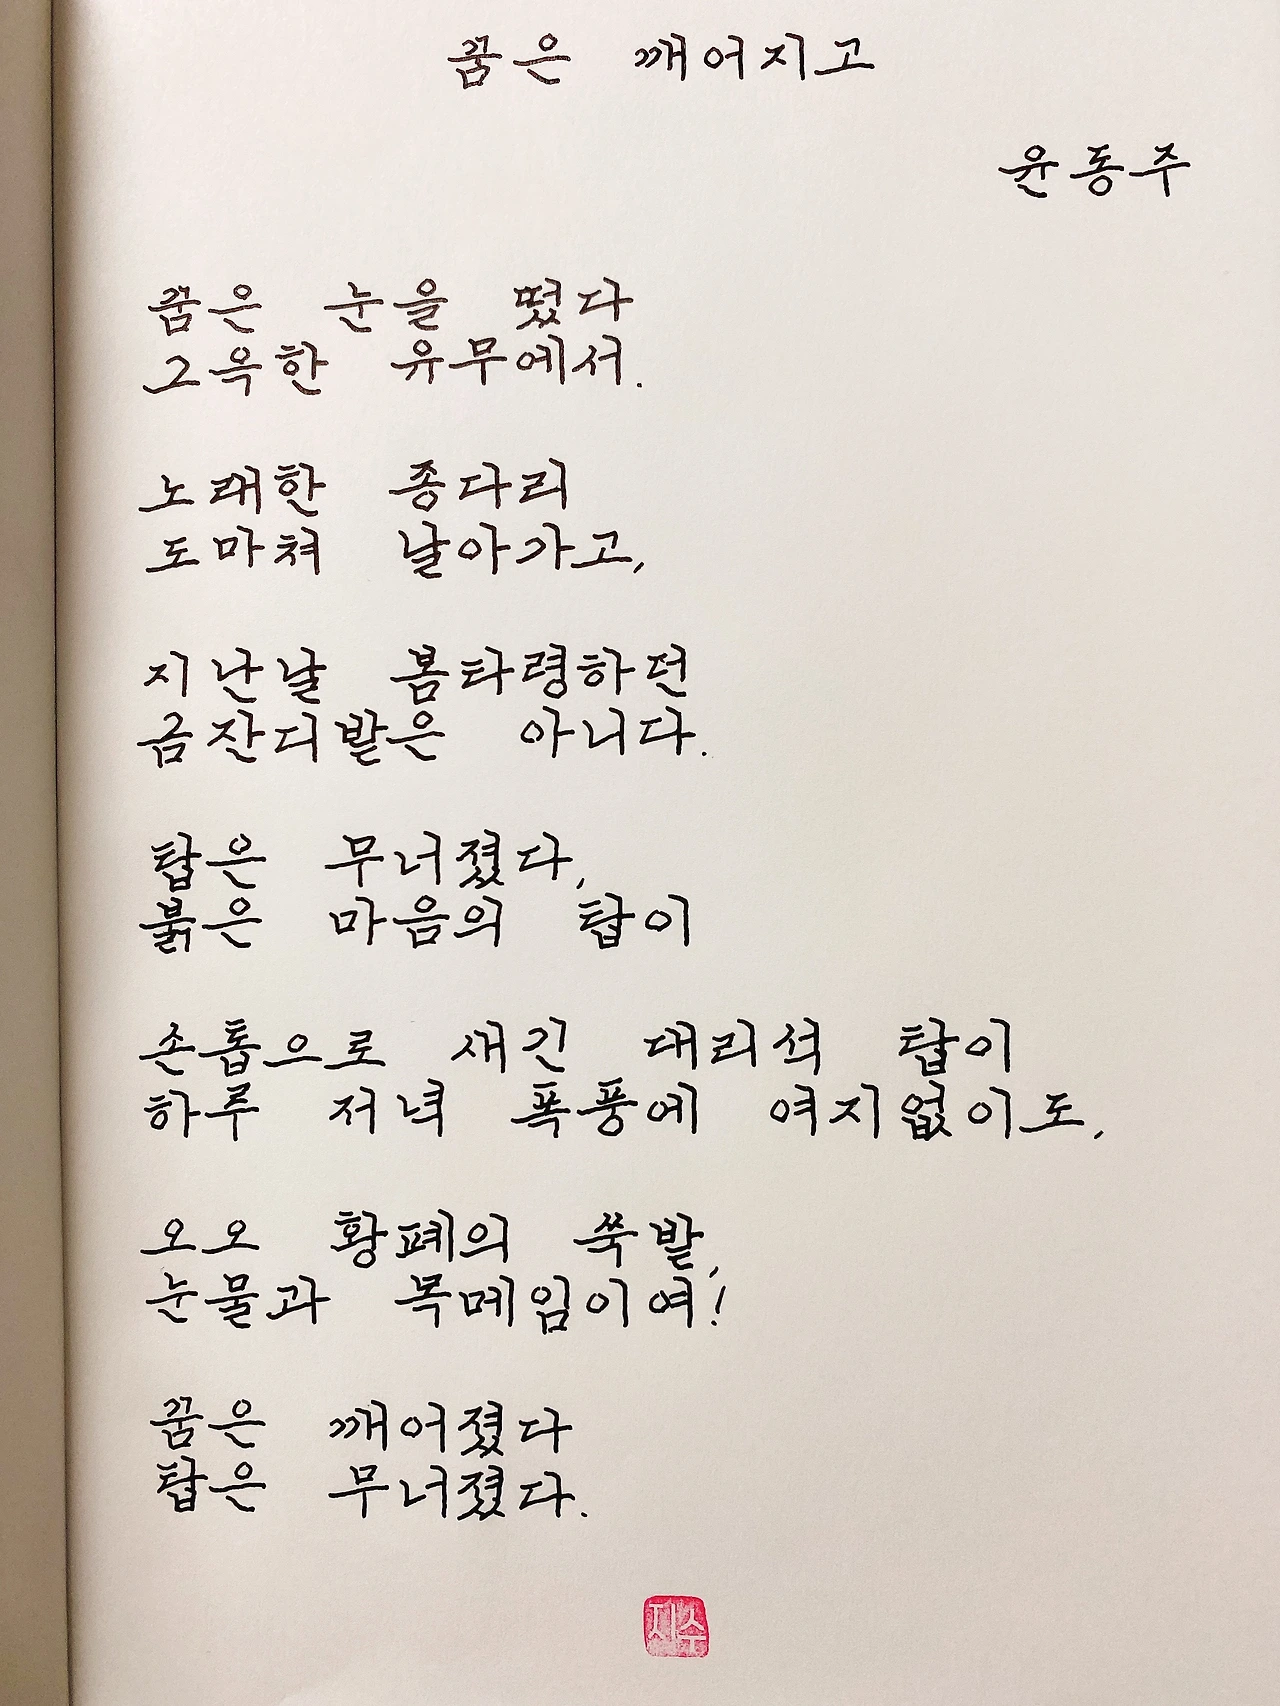 꿈은 깨어지고
윤동주
꿈은 눈을 떴다
그윽한 유무에서.
노래한 종다리
도마쳐 날아가고,
지난날 봄타령하던
금잔디밭은 아니다.
탑은 무너졌다,
붉은 마음의 탑이
손톱으로 새긴 대리석 탑이
하루 저녁 폭풍에 여지없이도,
오오 황폐의 쑥밭,
눈물과 목메임이여!
꿈은 깨어졌다
탑은 무너졌다.
지수